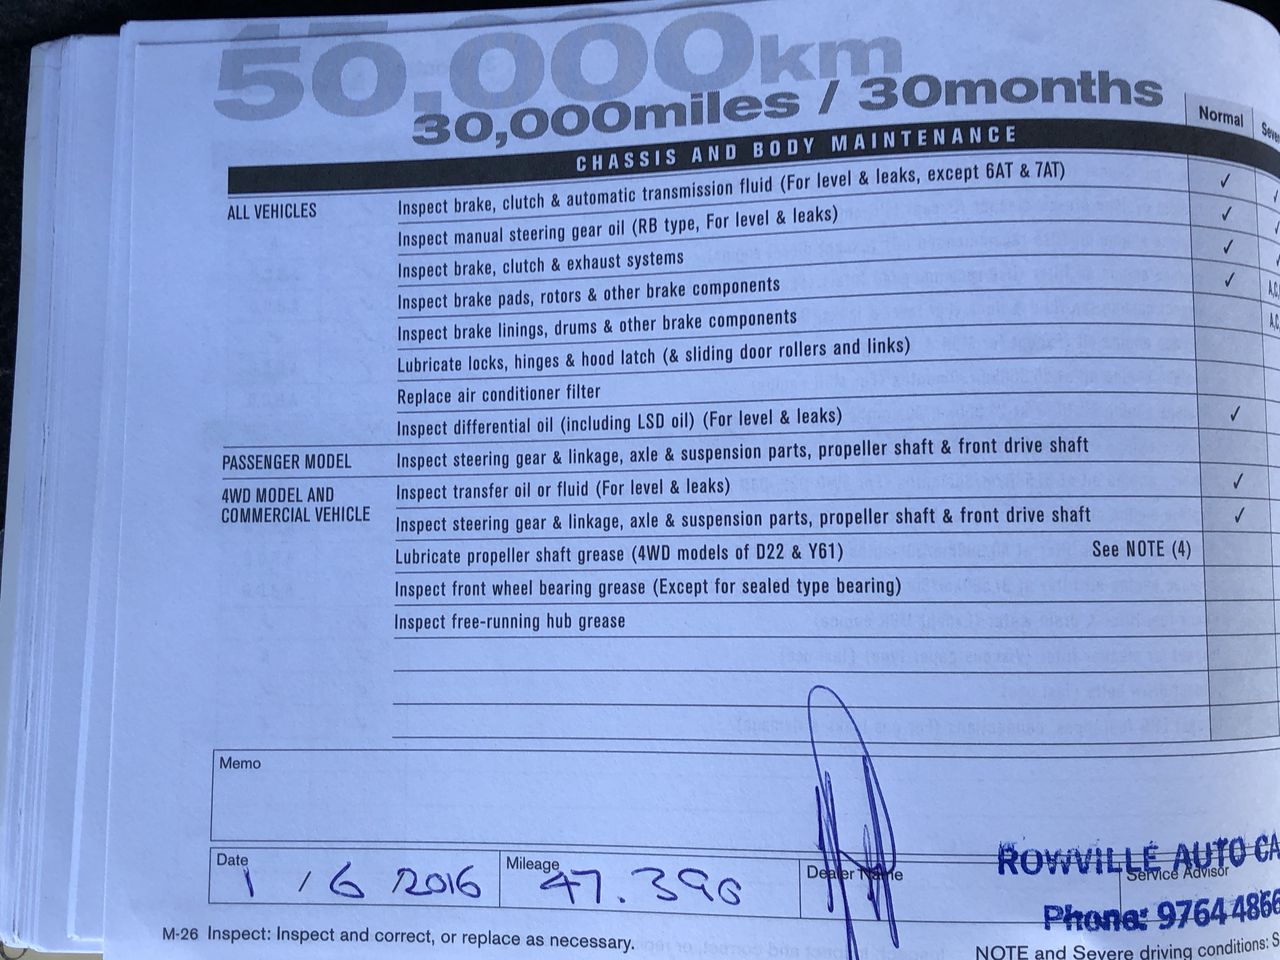 50,000km
30,000miles / 30months
Normal
CHASSIS AND BODY MAINTENANCE
ALL VEHICLES
Inspect brake, clutch & automatic transmission fluid (For level & leaks, except 6AT & 7AT) ✓
Inspect manual steering gear oil (RB type, For level & leaks) ✓
Inspect brake, clutch & exhaust systems ✓
Inspect brake pads, rotors & other brake components ✓
Inspect brake linings, drums & other brake components
Lubricate locks, hinges & hood latch (& sliding door rollers and links)
Replace air conditioner filter
Inspect differential oil (including LSD oil) (For level & leaks) ✓
PASSENGER MODEL Inspect steering gear & linkage, axle & suspension parts, propeller shaft & front drive shaft
4WD MODEL AND
COMMERCIAL VEHICLE
Inspect transfer oil or fluid (For level & leaks) ✓
Inspect steering gear & linkage, axle & suspension parts, propeller shaft & front drive shaft ✓
Lubricate propeller shaft grease (4WD models of D22 & Y61) See NOTE (4)
Inspect front wheel bearing grease (Except for sealed type bearing)
Inspect free-running hub grease
Memo
Date
1 / 6 2016
Mileage
47.396
Dealer Name
ROWVILLE AUTO
Service Advisor
Phone: 9764 4866
M-26 Inspect: Inspect and correct, or replace as necessary.
NOTE and Severe driving conditions: